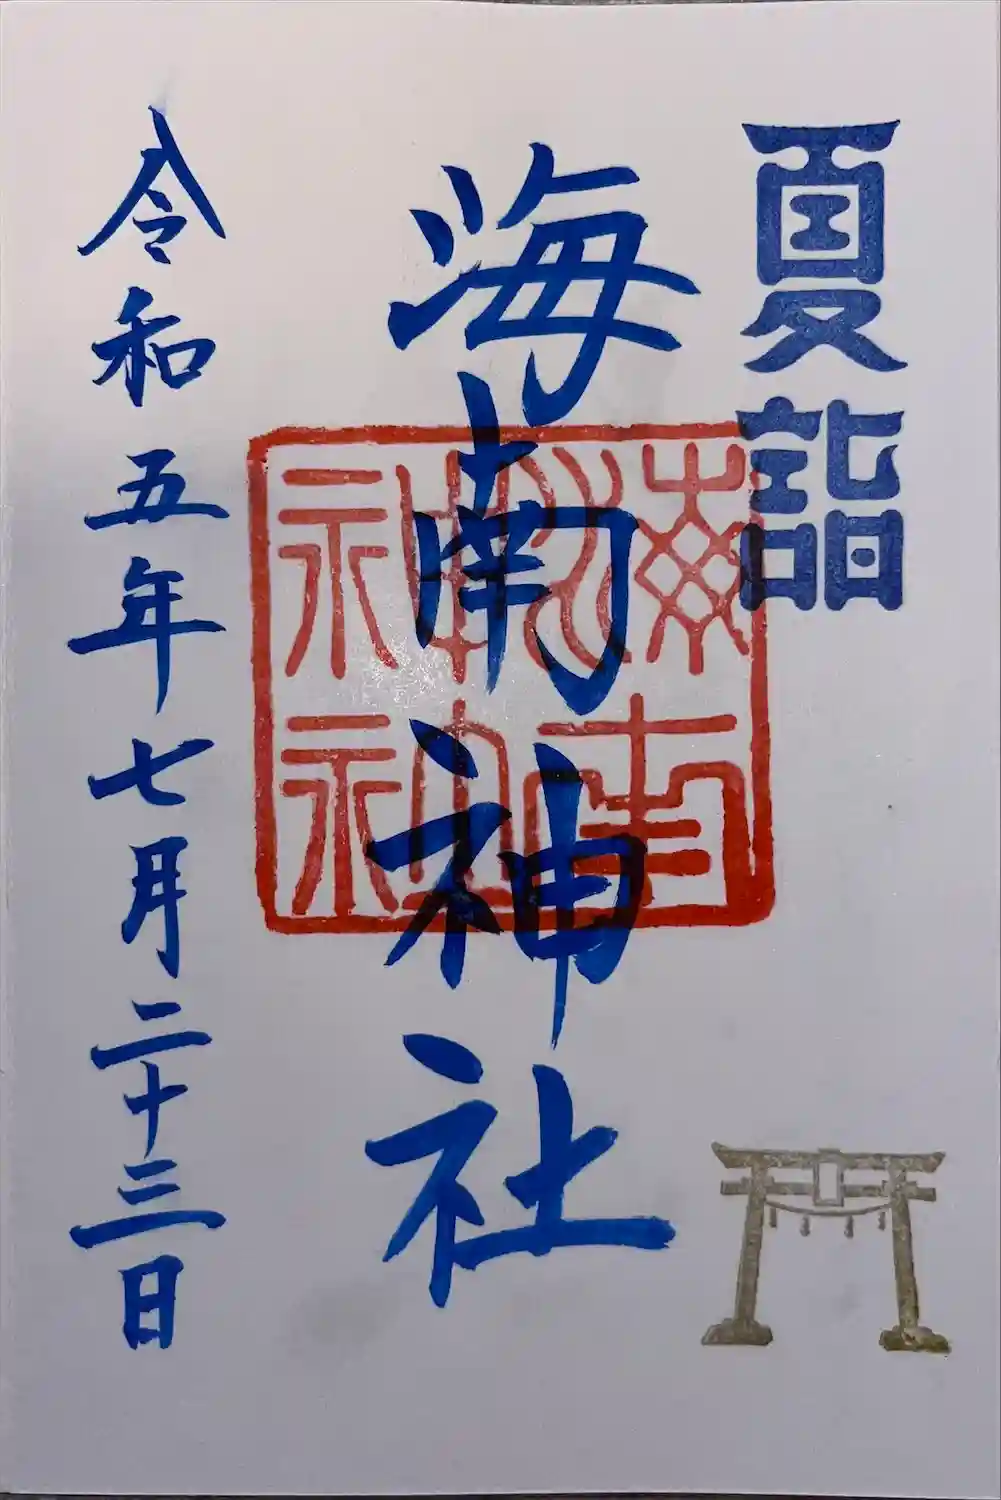 夏詣
海南神社
令和五年七月二十三日